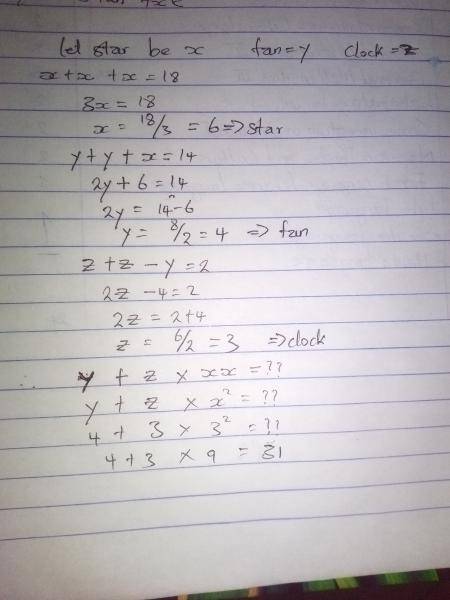 let star be x fan=y clock=z
x+x+x=18
3x=18
x= 18/3 = 6=>star
y+y+x=14
2y+6=14
2y= 14-6
y= 8/2=4 => fan
z+z-y=2
2z-4=2
2z=2+4
z= 6/2=3 =>clock
y+z×xx=??
y+z×x²=??
4+3×3²=??
4+3×9=31